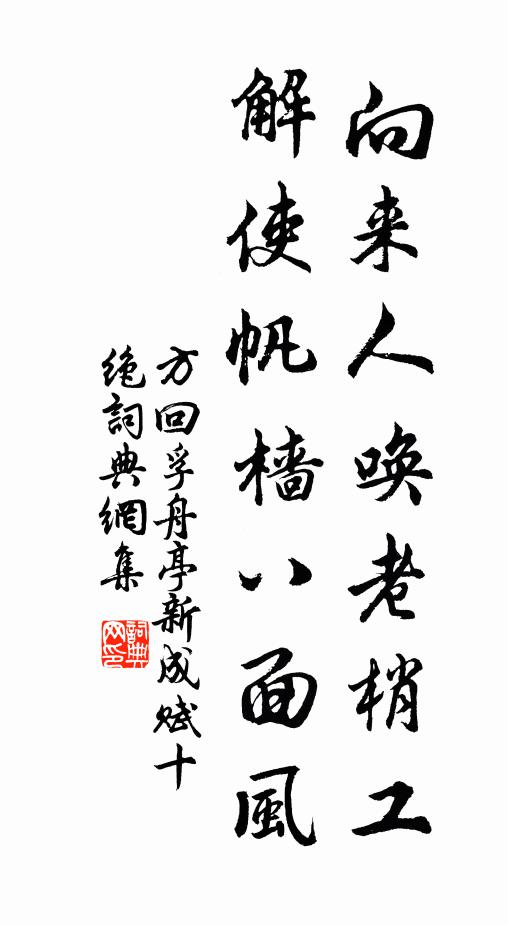 向来人唤老梢工
解使帆檣八面風
方回孚舟亭新成賦十
絶詞典網集
詞典网印